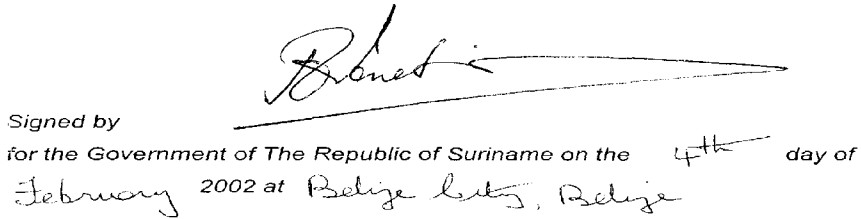 Signed by
for the Government of The Republic of Suriname on the 4th day of
February 2002 at Belize City, Belize